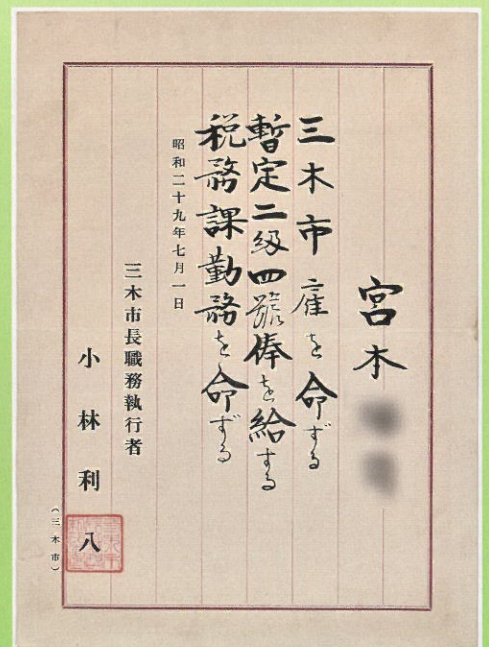 宮木
三木市雇を命ずる
暫定二級四號俸を給する
税務課勤務を命ずる
昭和二十九年七月一日
三木市長職務執行者
小林利八
（三木市）